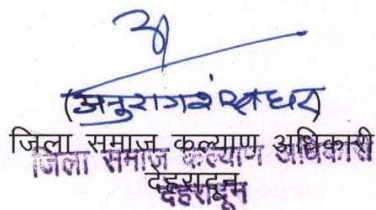 (अनुराग शंखधर)
जिला समाज कल्याण अधिकारी
जिला समाज कल्याण अधिकारी
देहरादून
देहरादून